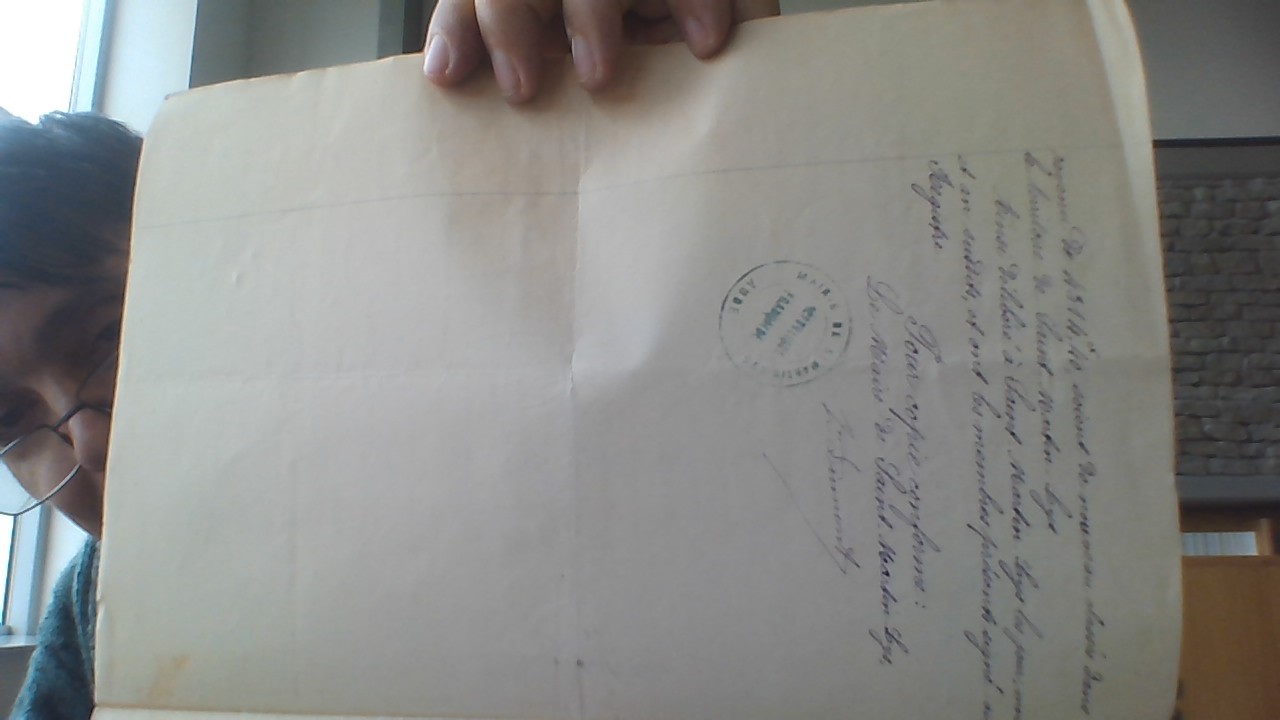 revenu de 4314f,40, soient de nouveau classés dans
le territoire de Saint-Martin-Lys
Ainsi délibéré à Saint-Martin-Lys les jour, m
et an susdits, et ont les membres présents signé au
Registre
Pour copie conforme:
Le Maire de Saint-Martin-Lys,
MAIRIE DE MARTIN
FRANÇAISE
AUDE